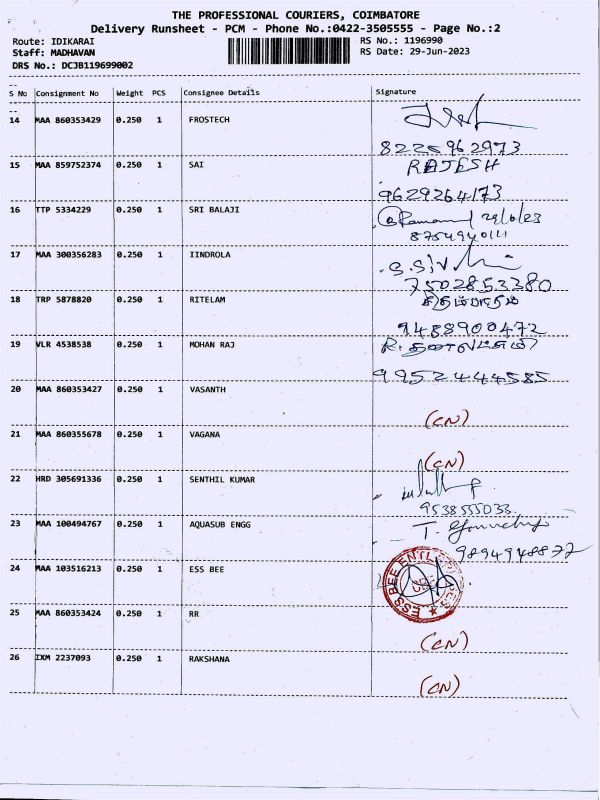 THE PROFESSIONAL COURIERS, COIMBATORE
Delivery Runsheet - PCM - Phone No.:0422-3505555 - Page No.:2
Route: IDIKARAI RS No.: 1196990
Staff: MADHAVAN RS Date: 29-Jun-2023
DRS No.: DCJB119699002
S No Consignment No Weight PCS Consignee Details Signature
14 MAA 860353429 0.250 1 FROSTECH
8225962973
15 MAA 859752374 0.250 1 SAI RAJESH
9629264173
16 TTP 5334229 0.250 1 SRI BALAJI 29/6/23
8754940111
17 MAA 300356283 0.250 1 IINDROLA S.Siv
7502853380
18 TRP 5878820 0.250 1 RITELAM
9488900472
19 VLR 4538538 0.250 1 MOHAN RAJ R. தனலட்சுமி
9952444585
20 MAA 860353427 0.250 1 VASANTH
(CN)
21 MAA 860355678 0.250 1 VAGANA
(CN)
22 HRD 305691336 0.250 1 SENTHIL KUMAR
9538555033
23 MAA 100494767 0.250 1 AQUASUB ENGG T.
9894948872
24 MAA 103516213 0.250 1 ESS BEE ESS BEE
25 MAA 860353424 0.250 1 RR
(CN)
26 IXM 2237093 0.250 1 RAKSHANA
(CN)